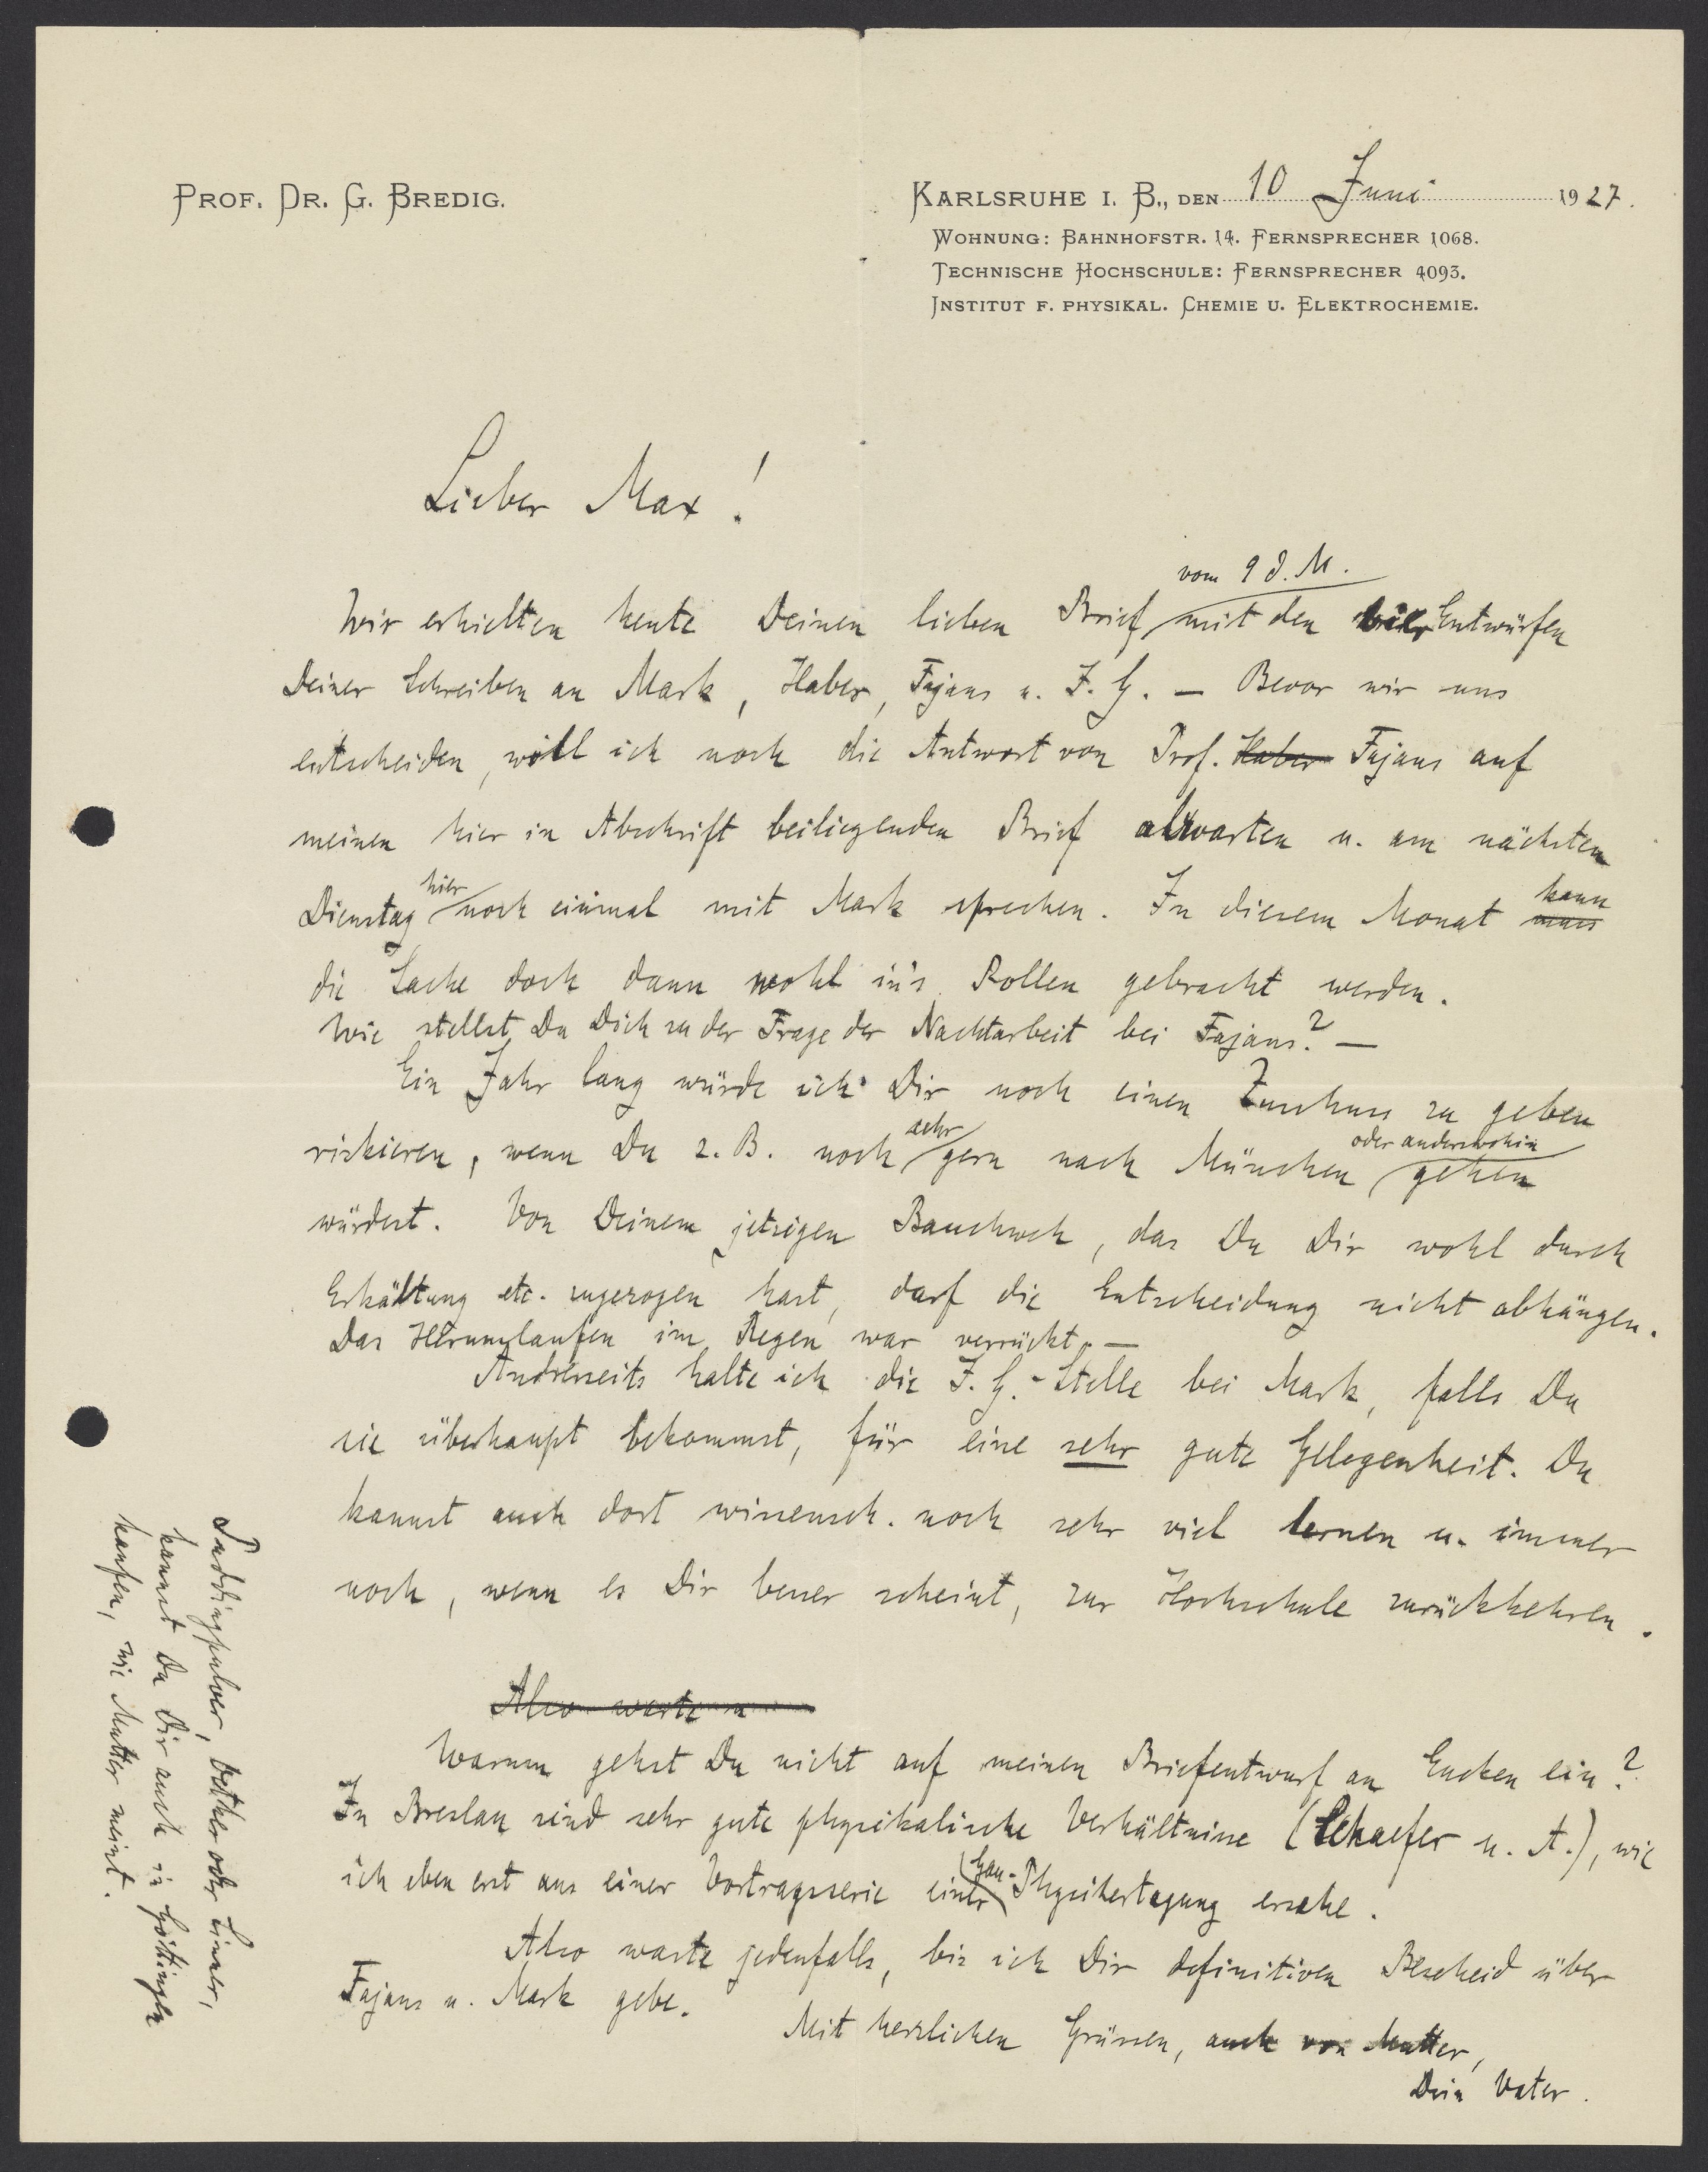 PROF. DR. G. BREDIG.
KARLSRUHE I. B., DEN 10 Juni 1927.
WOHNUNG: BAHNHOFSTR. 14. FERNSPRECHER 1068.
TECHNISCHE HOCHSCHULE: FERNSPRECHER 4093.
INSTITUT F. PHYSIKAL. CHEMIE U. ELEKTROCHEMIE.
Lieber Max!
vom 9 d. M.
Wir erhielten heute Deinen lieben Brief mit den vier Entwürfen
Deiner Schreiben an Mark, Haber, Fajans u. I. G. — Bevor wir uns
entscheiden, will ich noch die Antwort von Prof. Haber Fajans auf
meinen hier in Abschrift beiliegenden Brief abwarten u. am nächsten
hier kann
Dienstag noch einmal mit Mark sprechen. In diesem Monat muss
die Sache doch dann wohl in's Rollen gebracht werden.
Wie stellst Du Dich zu der Frage der Nachtarbeit bei Fajans? —
Ein Jahr lang würde ich Dir noch einen Zuschuss zu geben
sehr oder anderswohin
riskieren, wenn Du z. B. noch gern nach München gehen
würdest. Von Deinem jetzigen Bauchweh, das Du Dir wohl durch
Erkältung etc. zugezogen hast, darf die Entscheidung nicht abhängen.
Das Herumlaufen im Regen war verrückt. —
Andrerseits halte ich die I. G.-Stelle bei Mark, falls Du
sie überhaupt bekommst, für eine sehr gute Gelegenheit. Du
kannst auch dort wissensch. noch sehr viel lernen u. immer
noch, wenn es Dir besser scheint, zur Hochschule zurückkehren.
Also warte u
Warum gehst Du nicht auf meinen Briefentwurf an Eucken ein?
In Breslau sind sehr gute physikalische Verhältnisse (Schaefer u. A.), wie
Gau-
ich eben erst aus einer Vortragsserie einer Physikertagung ersehe.
Also warte jedenfalls, bis ich Dir definitiven Bescheid über
Fajans u. Mark gebe.
Mit herzlichen Grüssen, auch von Mutter,
Dein Vater.
Puddingpulver, Oetker oder
kannst Du Dir auch in Göttingen
kaufen, wie Mutter meint.